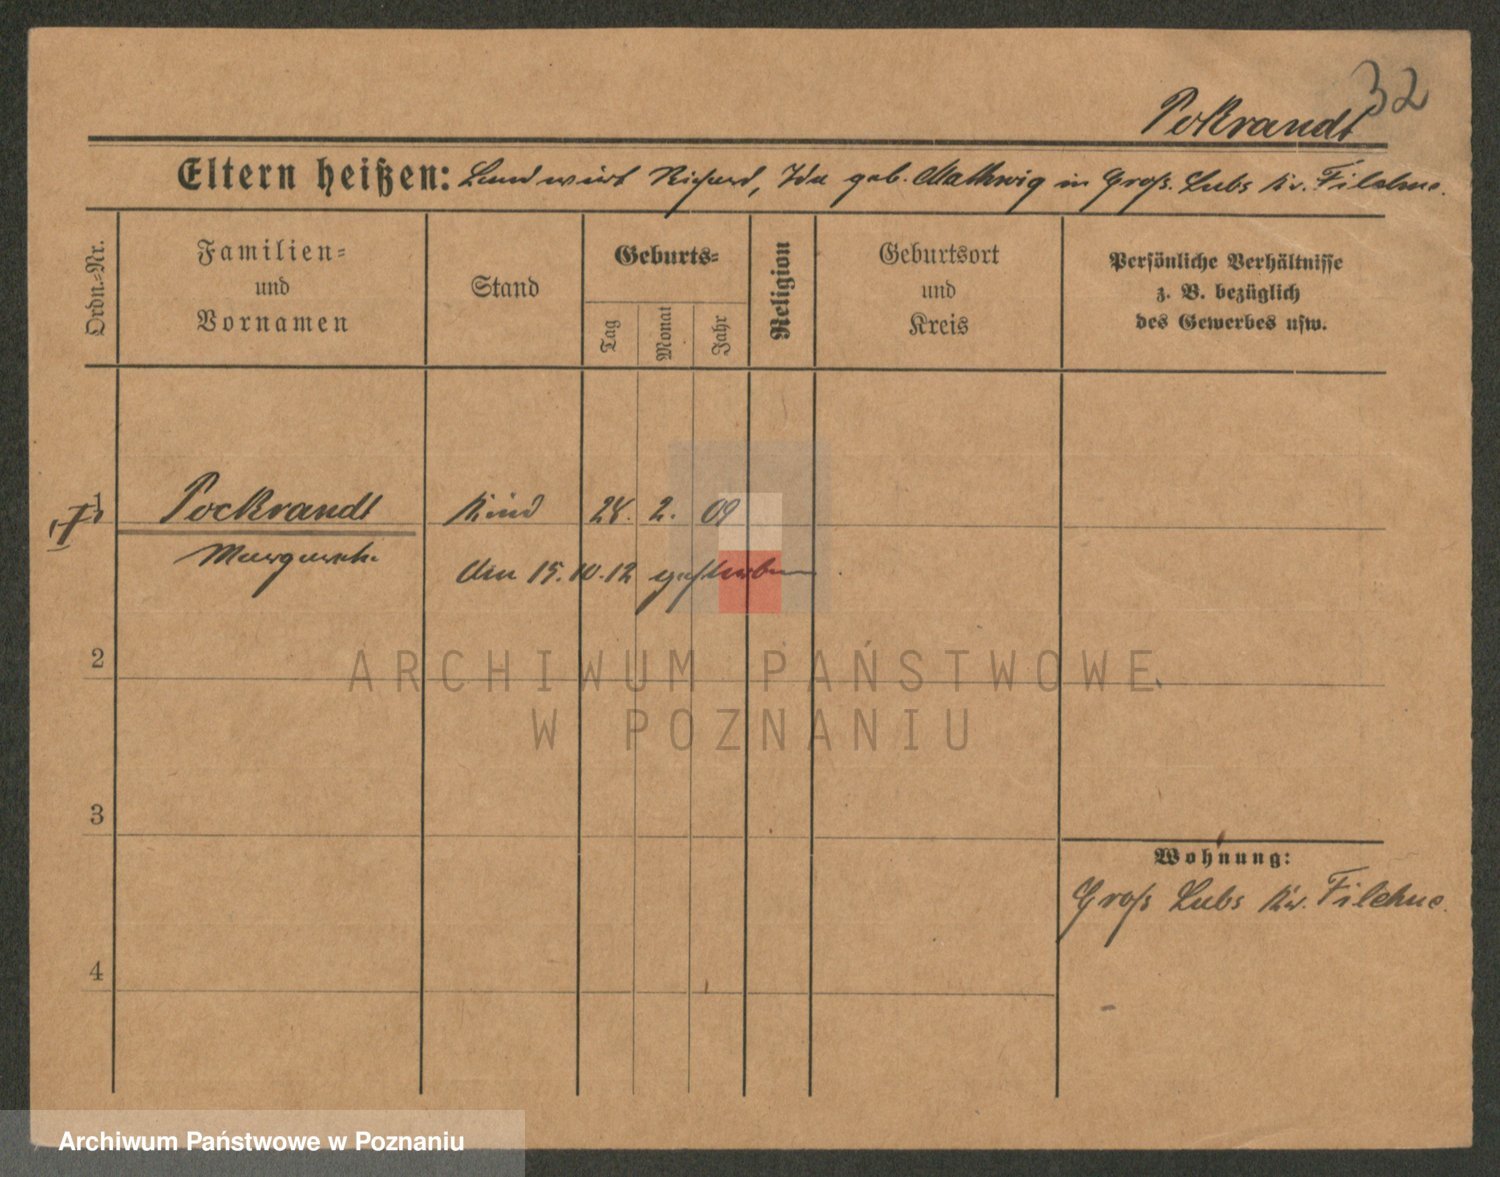 32
Pokrandt
Eltern heißen: Landwirt Richard, Ida geb. Mathwig in Groß Lubs Kr. Filehne.
Ordn.-Nr.
Familien-
und
Vornamen
Stand
Geburts-
Tag
Monat
Jahr
Religion
Geburtsort
und
Kreis
Persönliche Verhältnisse
z. B. bezüglich
des Gewerbes usw.
1 Pockrandt Kind 28. 2. 09
den 15.10.12 gestorben
2
ARCHIWUM PAŃSTWOWE
W POZNANIU
3
Wohnung:
Groß Lubs Kr. Filehne.
4
Archiwum Państwowe w Poznaniu